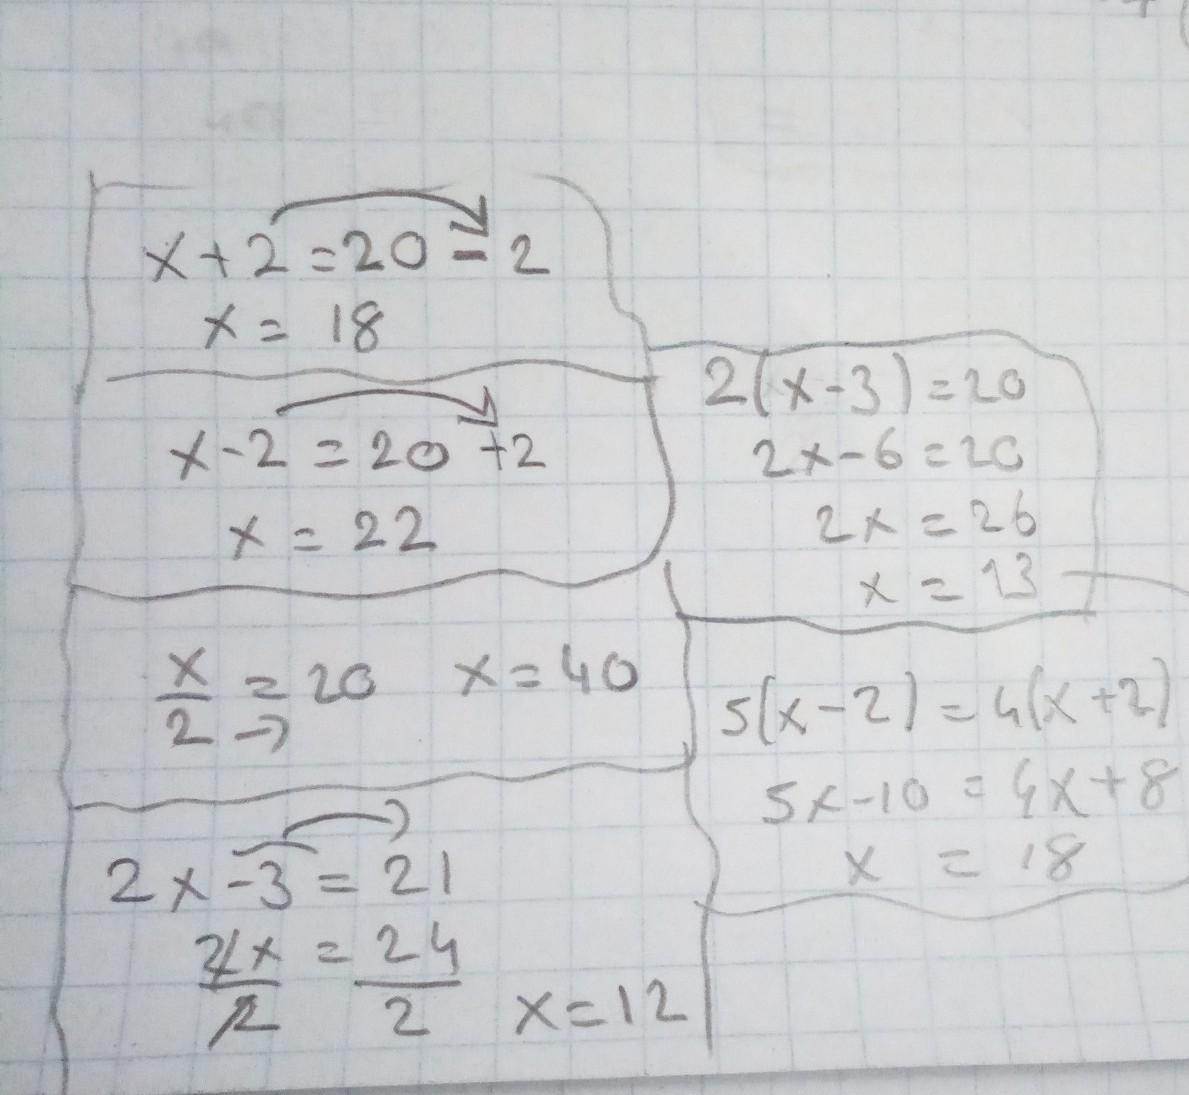 x+2=20-2
x=18
x-2=20+2
x=22
x/2=20 x=40
2x-3=21
2x/2=24/2 x=12
2(x-3)=20
2x-6=20
2x=26
x=13
5(x-2)=4(x+2)
5x-10=4x+8
x=18